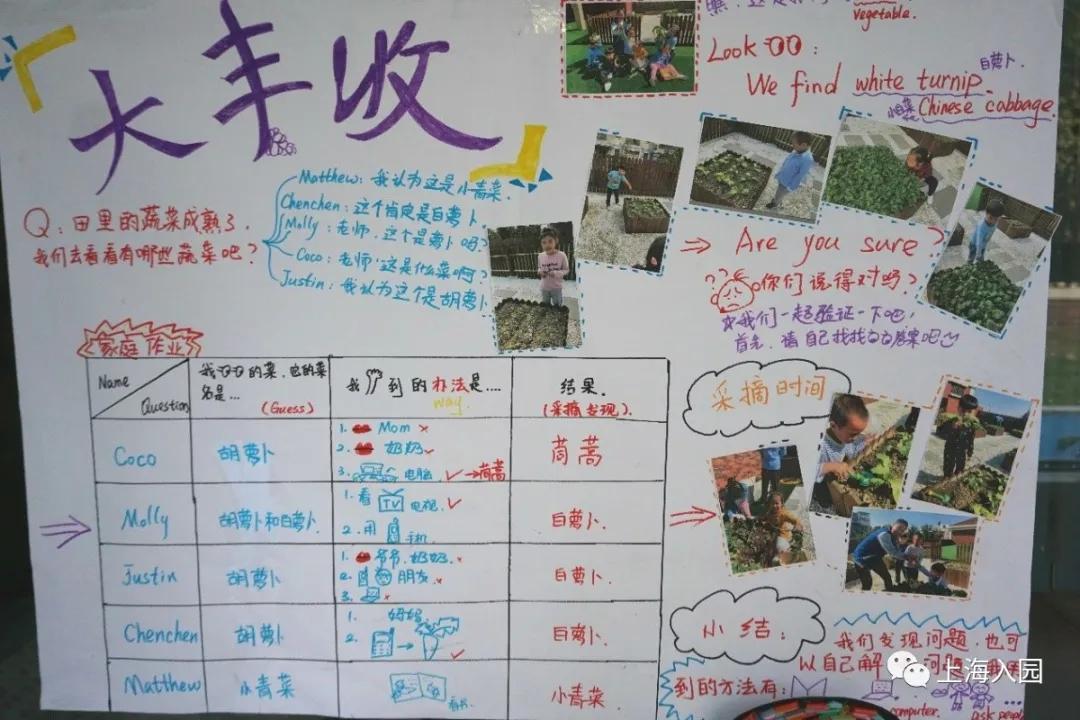 大丰收
vegetable.
Look :
白萝卜.
We find white turnip.
小白菜 Chinese cabbage.
Q: 田里的蔬菜成熟了,
我们去看看有哪些蔬菜吧?
Matthew: 我认为这是小青菜.
Chenchen: 这个肯定是白萝卜
Molly: 老师,这个是萝卜吗?
Coco: 老师,这是什么菜啊?
Justin: 我认为这个是胡萝卜
Are you sure?
你们说得对吗?
我们一起验证一下吧,
首先,请自己找找答案吧
家庭作业
Name
Question
我的菜,它的菜
名是...
(Guess)
我 到的办法是....
way.
结果.
(采摘发现).
Coco
胡萝卜
1. Mom ×
2. 奶奶
3. 电脑 ✓→茼蒿
茼蒿
Molly
胡萝卜和白萝卜.
1. 看 TV 电视.✓
2. 用 手机
白萝卜.
Justin
胡萝卜
1. 爷爷.奶奶.×
2. 朋友.×
3. ×
白萝卜.
Chenchen
胡萝卜
1. 妈妈
2. → ✓
白萝卜.
Matthew
小青菜
看书.
小青菜.
采摘时间
小结:
我们发现问题,也可
以自己解 问题
到的方法有:
computer.
ask people
上海入园